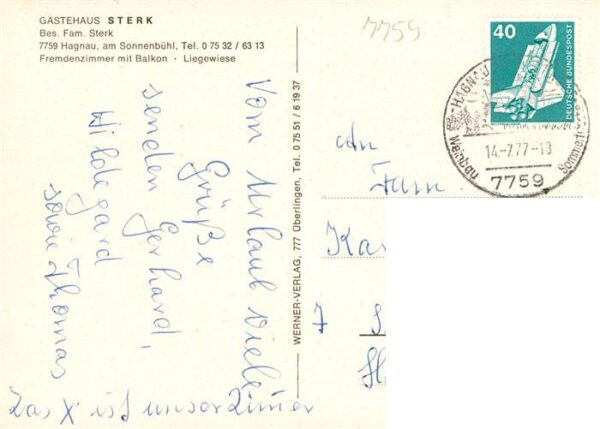 GÄSTEHAUS STERK
Bes. Fam. Sterk
7759 Hagnau, am Sonnenbühl, Tel. 0 75 32 / 63 13
Fremdenzimmer mit Balkon · Liegewiese
7759
40
DEUTSCHE BUNDESPOST
HAGNAU
14.-7.77-18
Weinbau
7759
Vom Urlaub viele
Grüße
senden Gerhard,
Hildegard
sowie Thomas
Das X ist unser Zimer
WERNER-VERLAG, 777 Überlingen, Tel. 0 75 51 / 6 19 37
An
Fam.
Ka
7 S